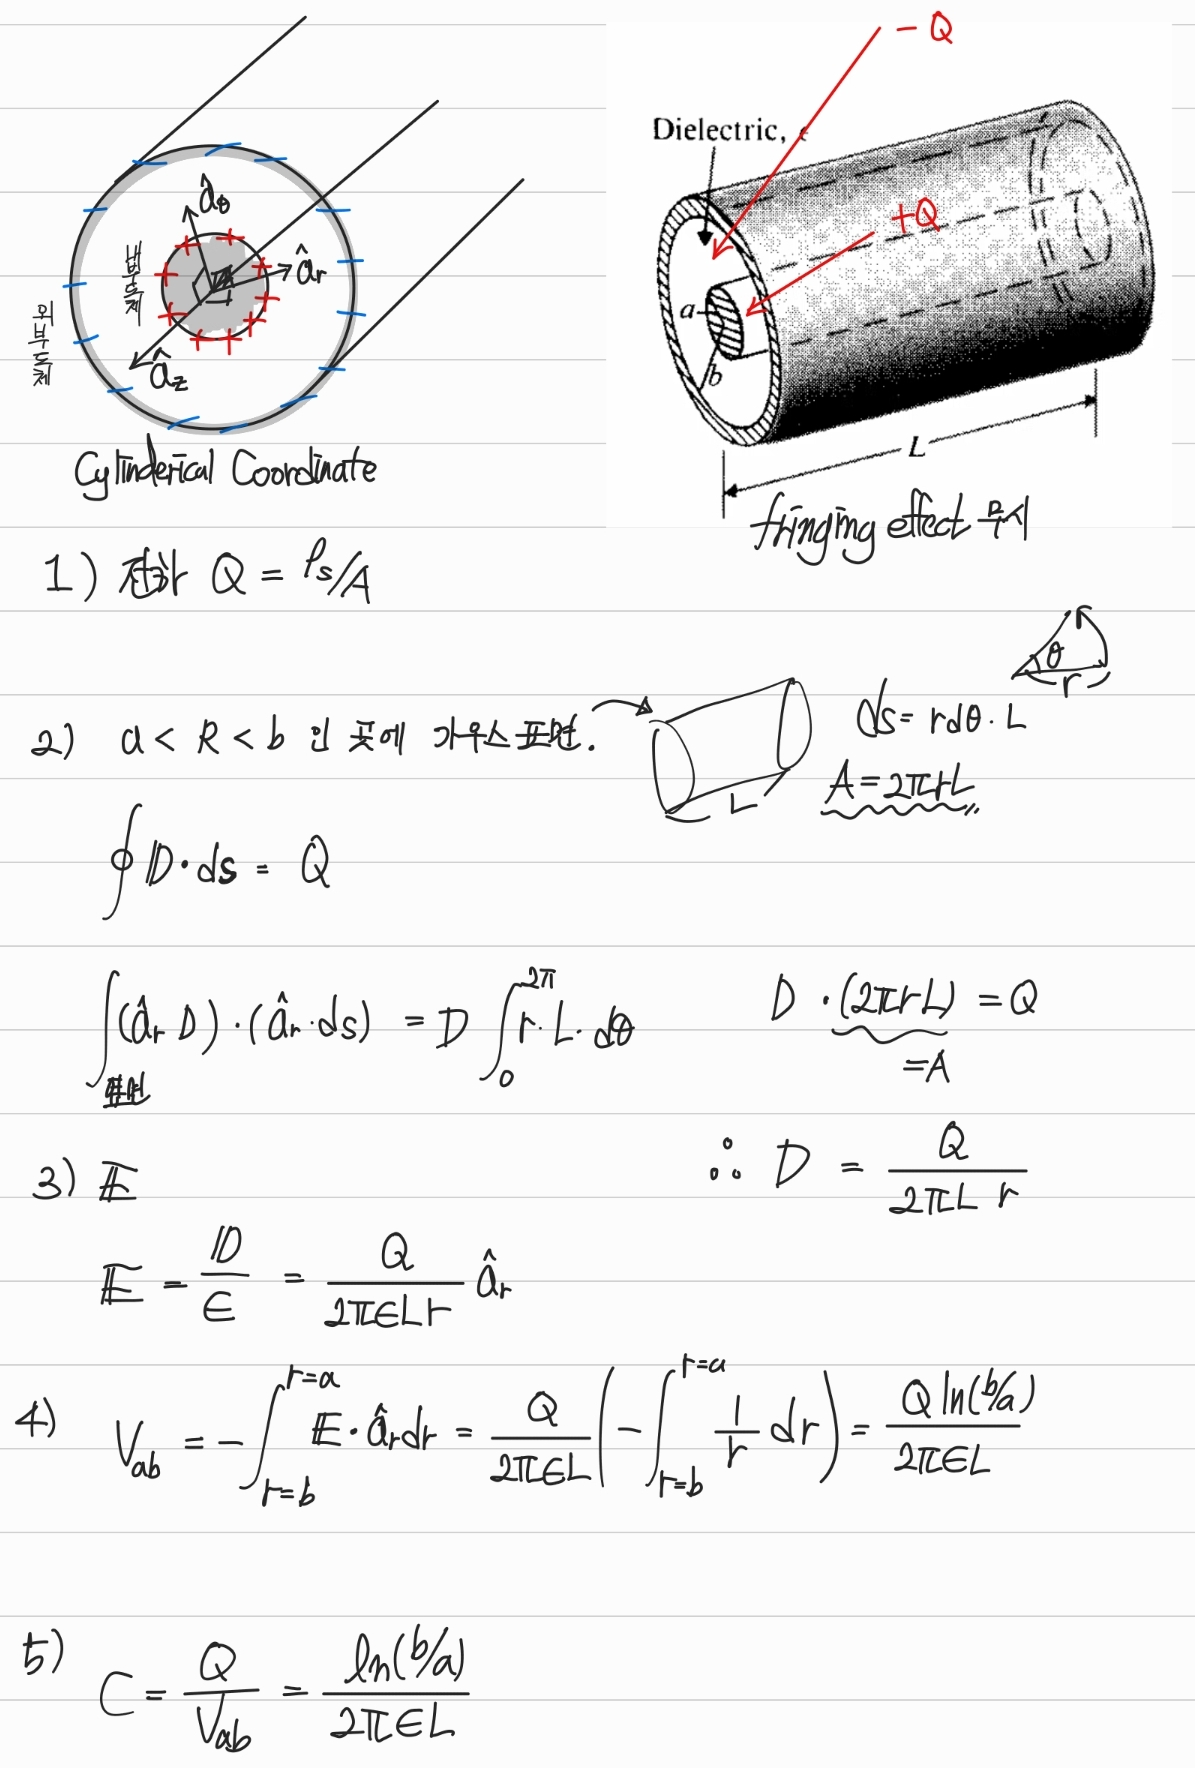 â_θ
â_r
â_z
내부도체
외부도체
Cylinderical Coordinate
-Q
Dielectric, ε
+Q
a
b
L
fringing effect 무시
1) 전하 Q = ρs/A
2) a < R < b 인 곳에 가우스 표면.
L
θ
r
ds = rdθ · L
A = 2πrL
∮ D · ds = Q
∫표면 (â_r D) · (â_r · ds) = D ∫₀^2π r · L · dθ
D · (2πrL) = Q
= A
∴ D = Q / 2πL r
3) E
E = D/ϵ = Q / 2πϵLr â_r
4) V_ab = - ∫_{r=b}^{r=a} E · â_r dr = Q / 2πϵL ( - ∫_{r=b}^{r=a} 1/r dr ) = Q ln(b/a) / 2πϵL
5) C = Q / V_ab = ln(b/a) / 2πϵL